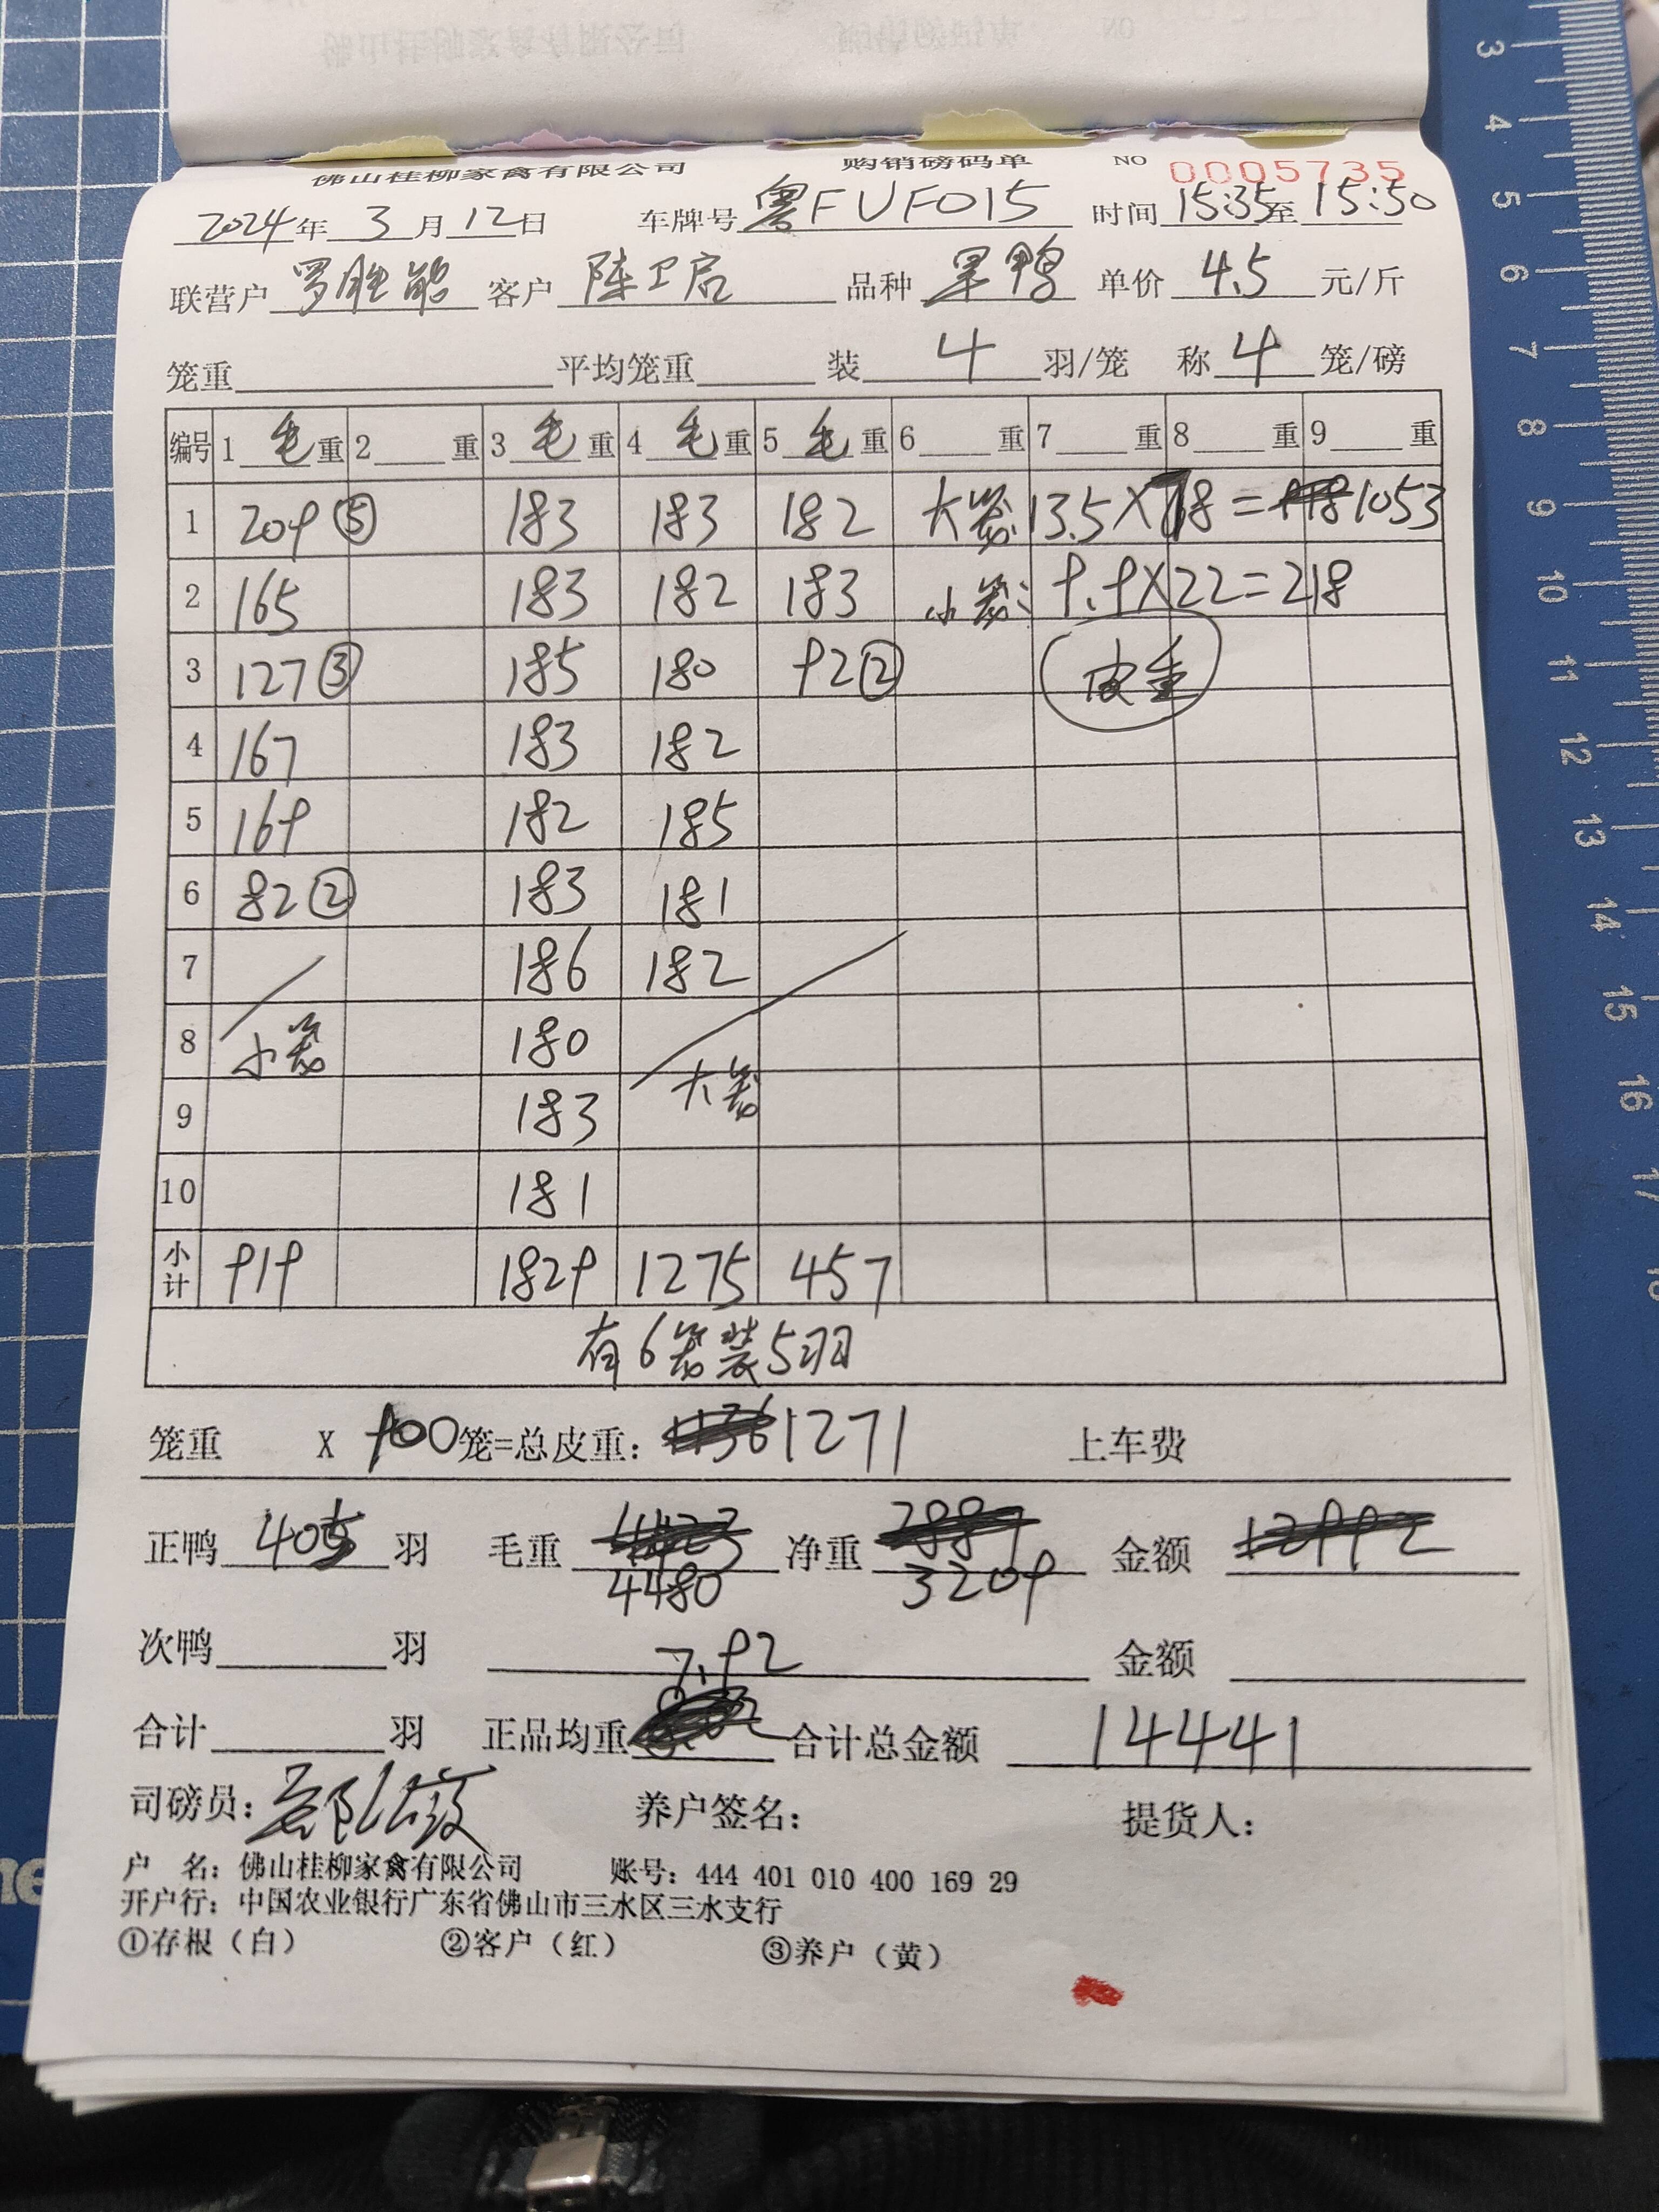 佛山桂柳家禽有限公司 购销磅码单 NO 0005735
2024年 3 月 12 日 车牌号 粤FUF015 时间 15:35 至 15:50
联营户 罗胜能 客户 陈卫启 品种 果鸭 单价 4.5 元/斤
笼重 平均笼重 装 4 羽/笼 称 4 笼/磅
编号 1 毛 重 2 重 3 毛 重 4 毛 重 5 毛 重 6 重 7 重 8 重 9 重
1 209 ⑤ 183 183 182 大笼: 13.5×78= 1053
2 165 183 182 183 小笼: 9.9×22=218
3 127 ③ 185 180 92 ② 皮重
4 167 183 182
5 169 182 185
6 82 ② 183 181
7 186 182
8 小笼 180
9 183 大笼
10 181
小计 919 1829 1275 457
有6笼装5羽
笼重 X 100 笼=总皮重: 1271 上车费
正鸭 405 羽 毛重 4423 净重 2887 金额 12992
4480 3209
次鸭 羽 7.92 金额
合计 羽 正品均重 合计总金额 14441
司磅员: 养户签名: 提货人:
户 名: 佛山桂柳家禽有限公司 账号: 444 401 010 400 169 29
开户行: 中国农业银行广东省佛山市三水区三水支行
①存根（白） ②客户（红） ③养户（黄）
3
4
5
6
7
8
9
10
11
12
13
14
15
16
17